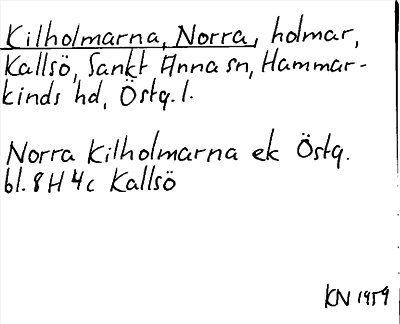 Kilholmarna, Norra, holmar,
Kallsö, Sankt Anna sn, Hammar-
kinds hd, Östg. l.
Norra Kilholmarna ek Östg.
bl. 8H 4c Kallsö
KN 1959